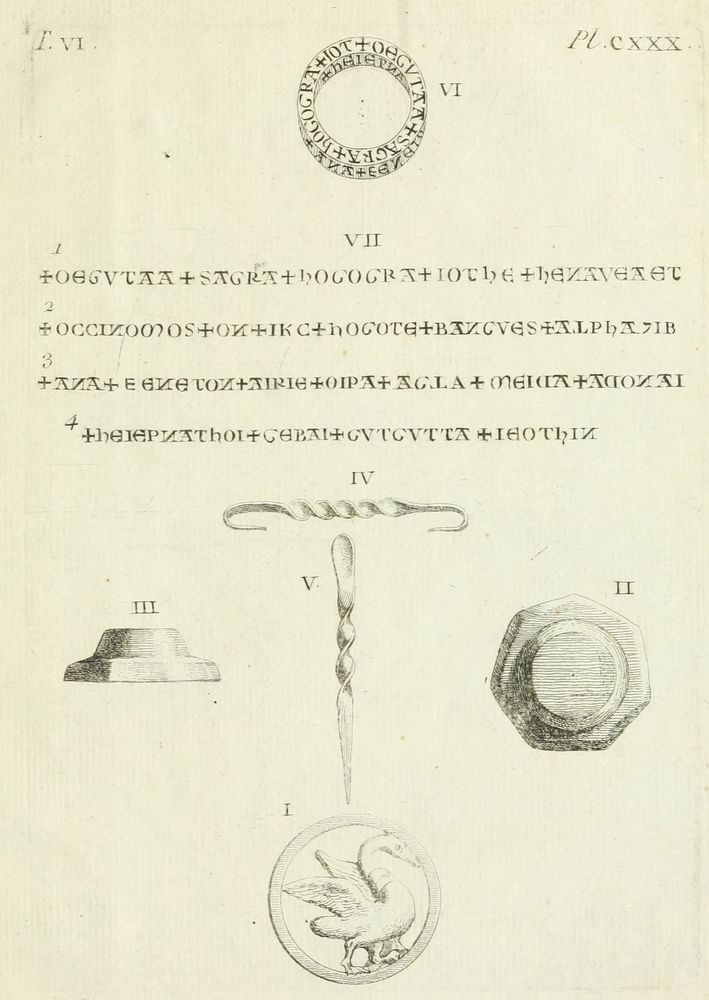 T. VI. Pl. CXXX.
+IOT+OEGUTAA+SAGRA+hOGOGRA
+hEIEPNA
+ANA+EENE
VI
VII
1
+OEGVTAA+SAGRA+hOGOGRA+IOThE+hENAVEAET
2
+OCCINOMOS+ON+IKC+hOGOTE+BANGVES+ALPhA7IB
3
+ANA+EENETON+AIRIE+OIPA+AGLA+MEIDA+ADONAI
4
+hEIEPNAThOI+GEBAI+GVTGVTTA+IEOThIN
IV
V.
III
II
I